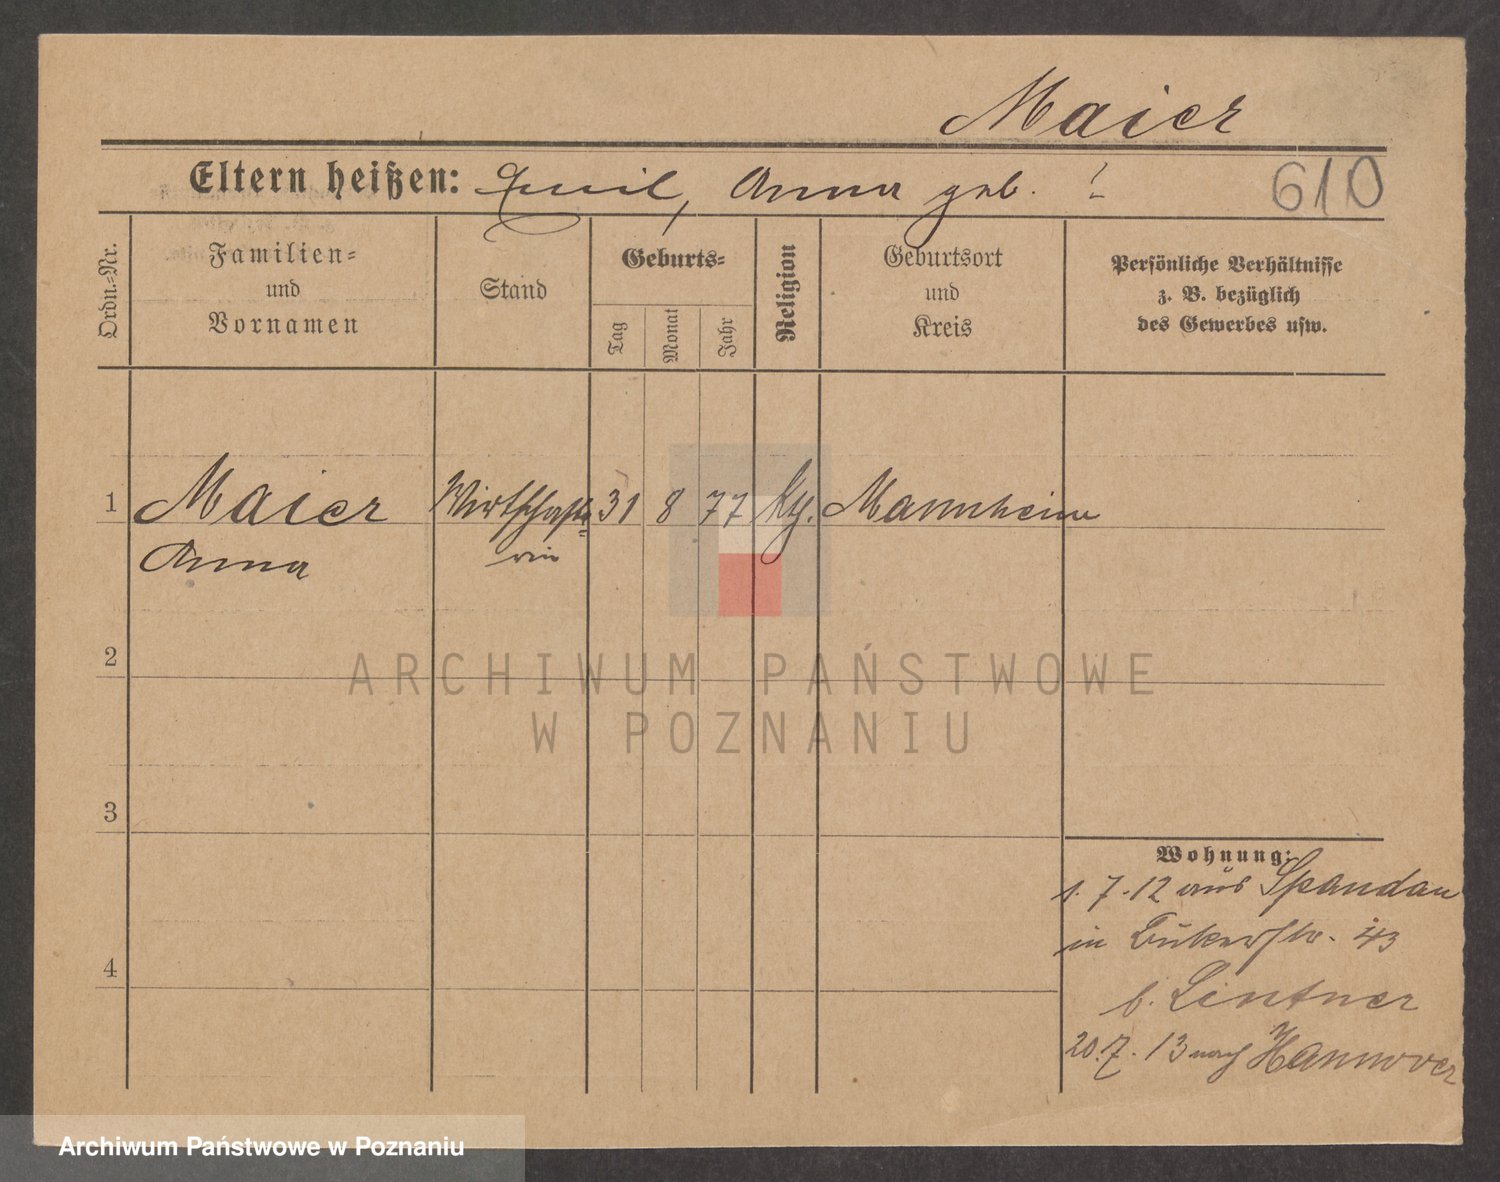 Maier
Eltern heißen: Emil, Anna geb. ?
610
Ordn.-Nr.
Familien-
und
Vornamen
Stand
Geburts-
Tag
Monat
Jahr
Religion
Geburtsort
und
Kreis
Persönliche Verhältnisse
z. B. bezüglich
des Gewerbes usw.
1 Maier Wirtschafte= 31 8 77 Mannheim
Anna rin
2
3
4
Wohnung:
1.7.12 aus Spandau
in 43
b. Lintner
20.7.13 nach Hannover
ARCHIWUM PAŃSTWOWE
W POZNANIU
Archiwum Państwowe w Poznaniu